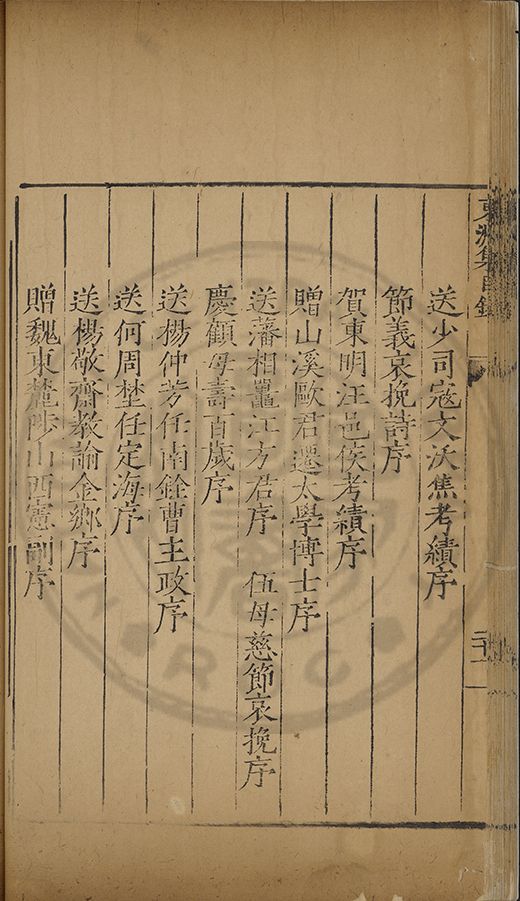 東洲集目錄
送少司寇文沃焦考績序
節義哀挽詩序
賀東明汪邑侯考績序
贈山溪歐君遷太學博士序
送藩相鼉江方君序 伍母慈節哀挽序
慶顧母壽百歲序
送楊仲芳任南銓曹主政序
送何周埜任定海序
送楊敬齋教諭金鄉序
贈魏東麓陟山西憲副序